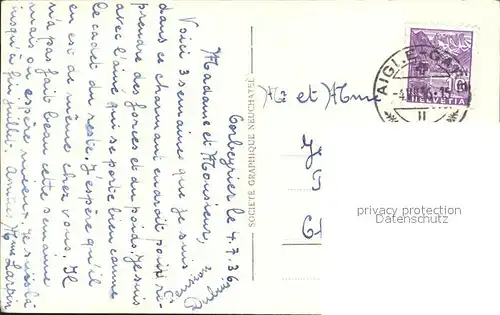 Corbeyrier le 4.7.36
Madame et Monsieur,
Voici 3 semaines que je suis
dans ce charmant endroit pour re-
prendre des forces et du poids. Je suis
avec l'aîné qui se porte bien comme
le cadet du reste. J'espère qu'il
en est de même chez vous. Il
n'a pas fait beau cette semaine
mais on espère mieux. Je suis là
jusqu'à fin juillet. Amitiés Mme
Pension
SOCIETE GRAPHIQUE NEUCHATEL
Mr et Mme
AIGLE-GARE
HELVETIA
10
II
privacy protection
Datenschutz